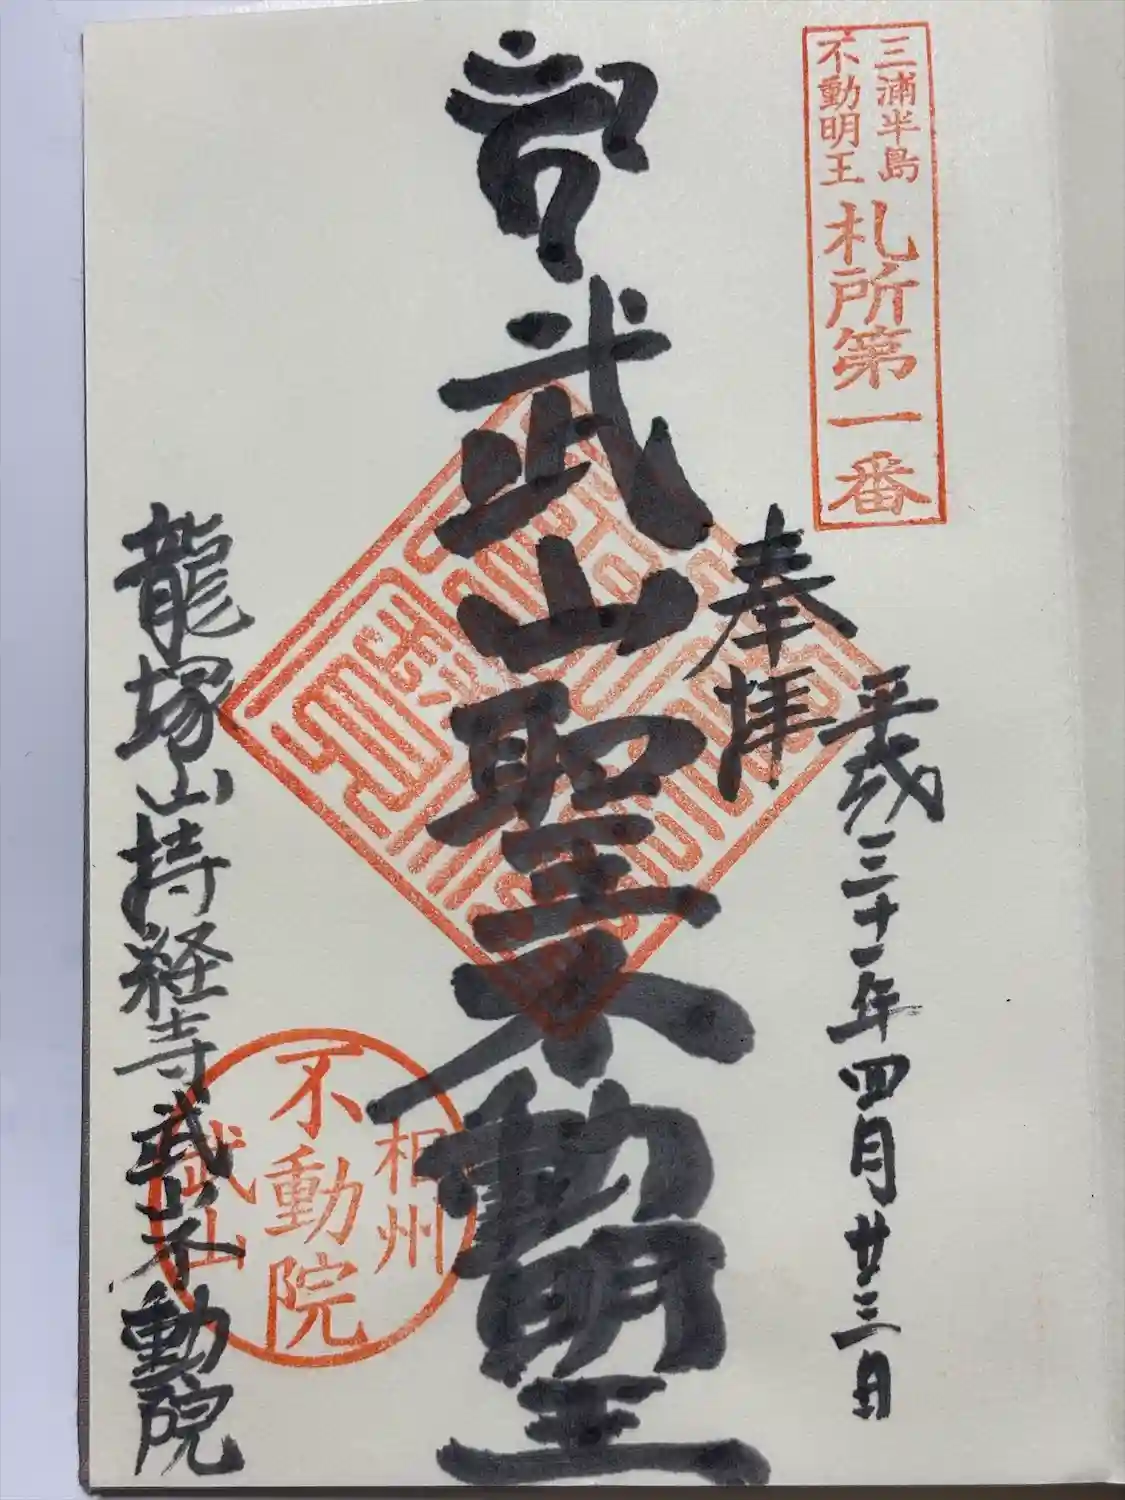 三浦半島
不動明王
札所第一番
平成三十一年四月廿三日
奉拝
武山聖不動明王
相州
不動院
武山
龍塚山持経寺武山不動院